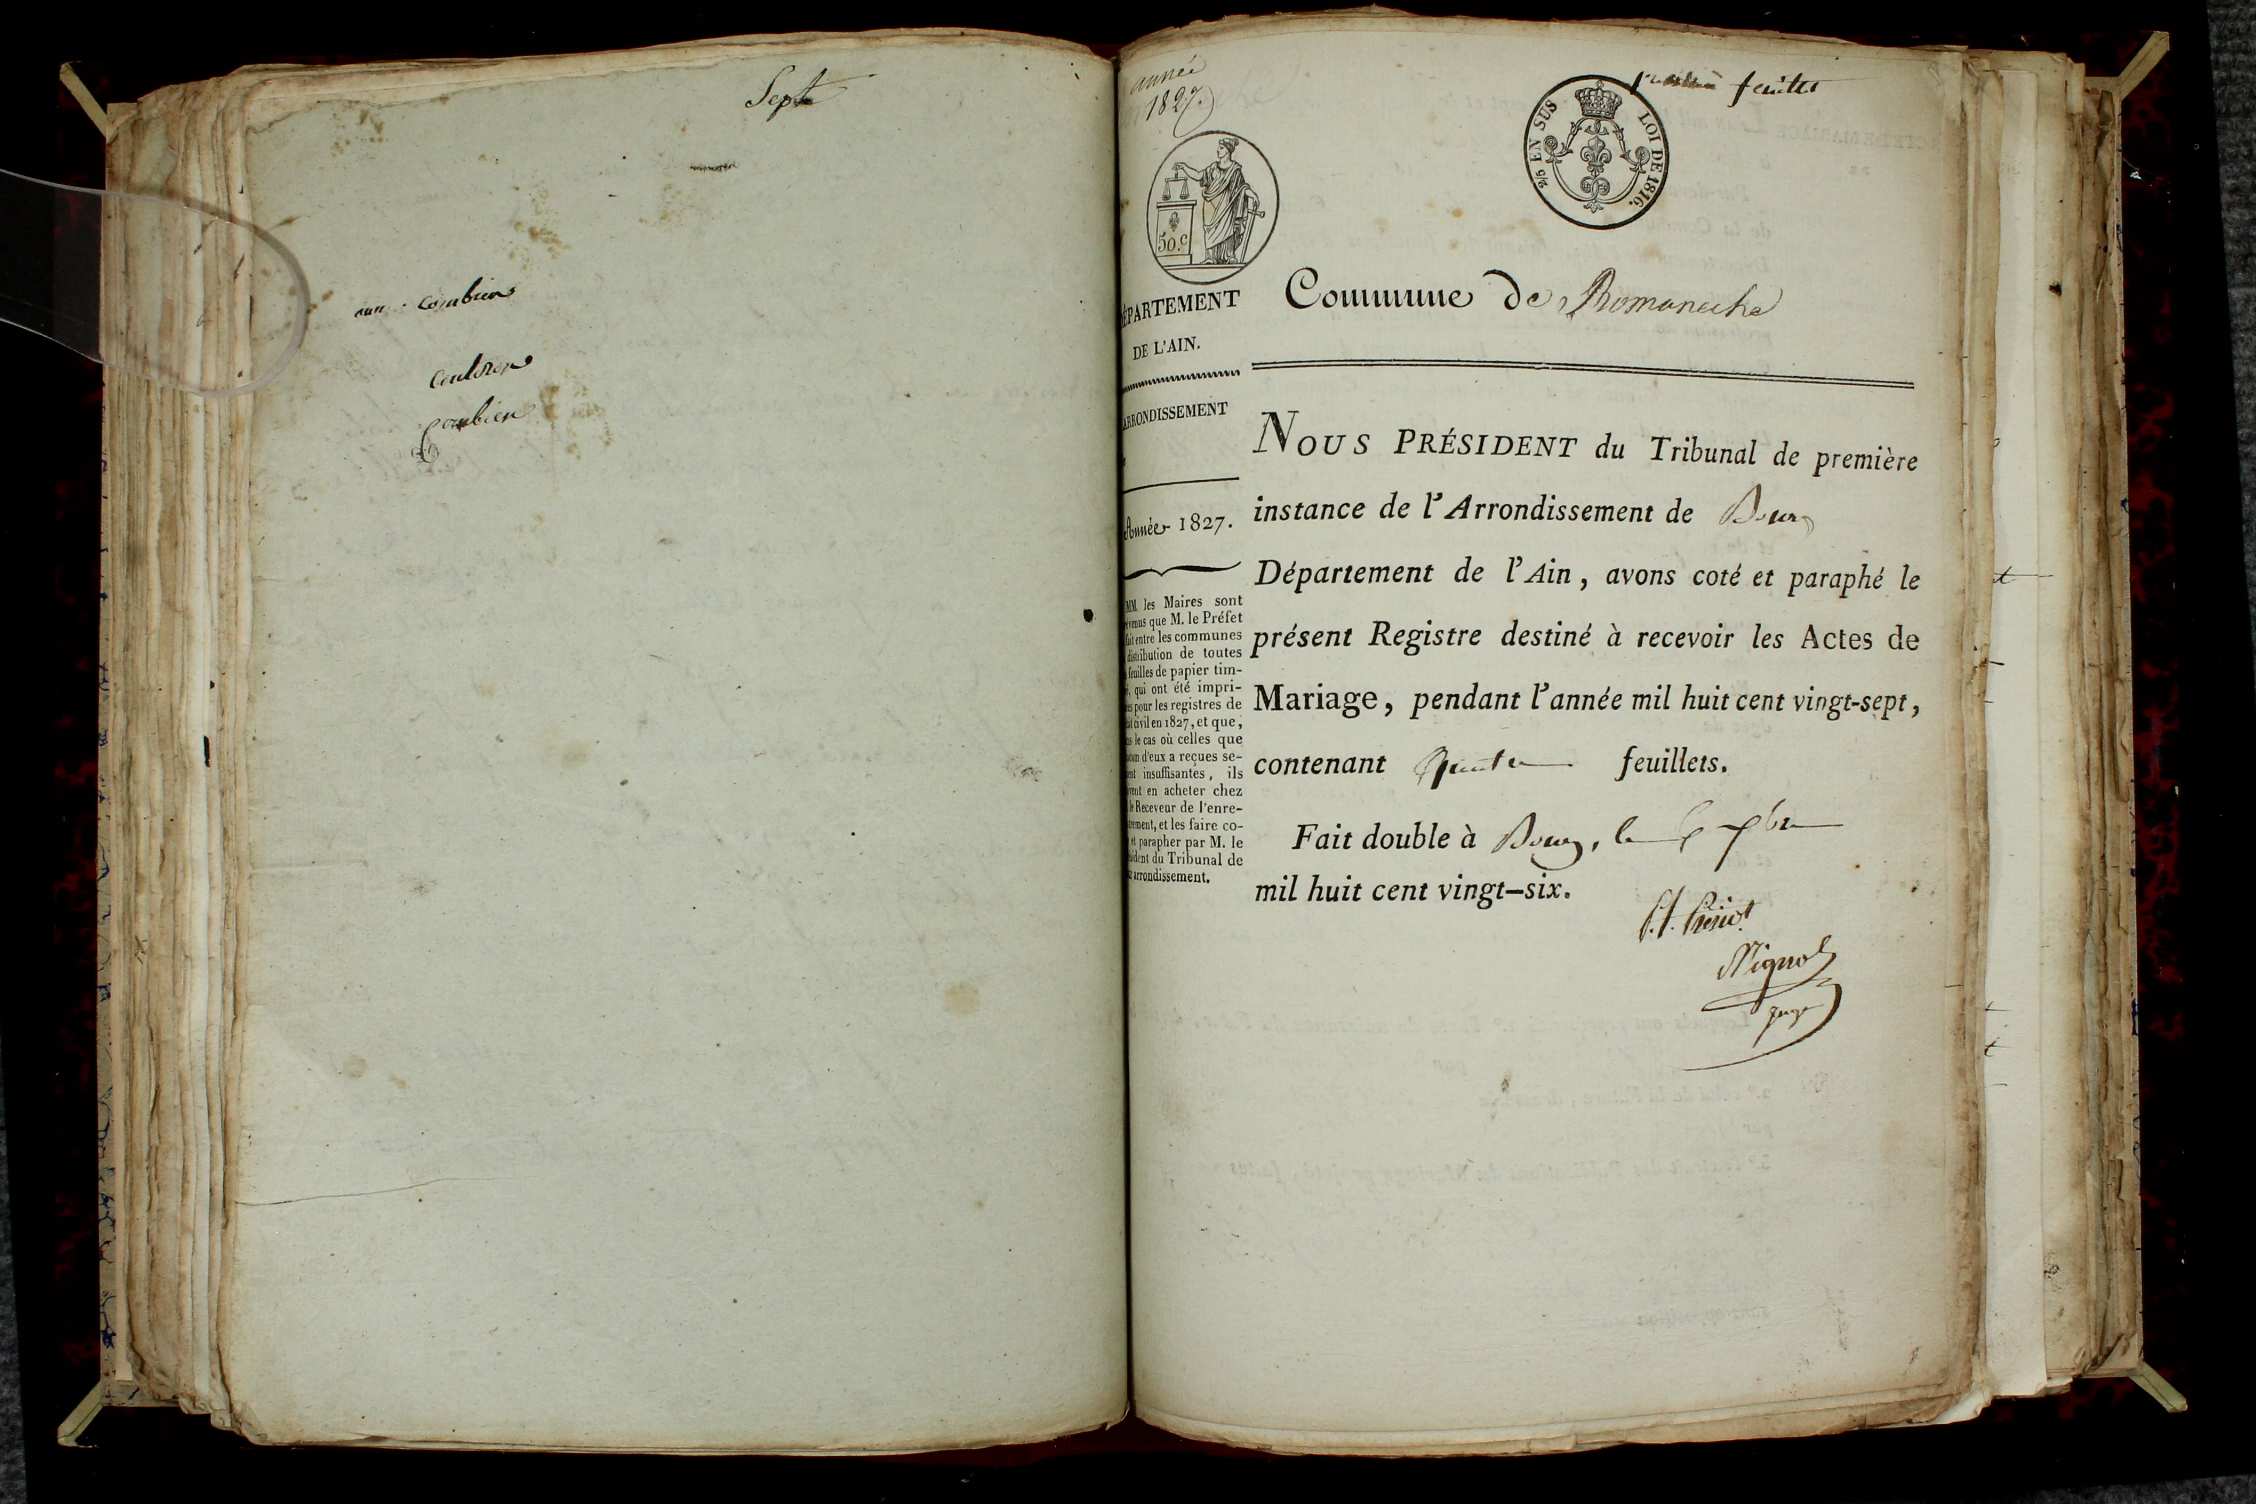 Sept
combien
combien
année
1827
feuillet
2/5 EN SUS
LOI DE 1816.
50.c
DÉPARTEMENT
DE L'AIN.
ARRONDISSEMENT
Année 1827.
MM. les Maires sont
prévenus que M. le Préfet
fait entre les communes
distribution de toutes
feuilles de papier tim-
qui ont été impri-
pour les registres de
civil en 1827, et que,
le cas où celles que
d'eux a reçues se-
insuffisantes, ils
en acheter chez
le Receveur de l'enre-
et les faire co-
et parapher par M. le
Président du Tribunal de
arrondissement.
Commune de Romaneche
NOUS PRÉSIDENT du Tribunal de première
instance de l'Arrondissement de Bourg
Département de l'Ain, avons coté et paraphé le
présent Registre destiné à recevoir les Actes de
Mariage, pendant l'année mil huit cent vingt-sept,
contenant feuillets.
Fait double à Bourg, le
mil huit cent vingt-six.
juge